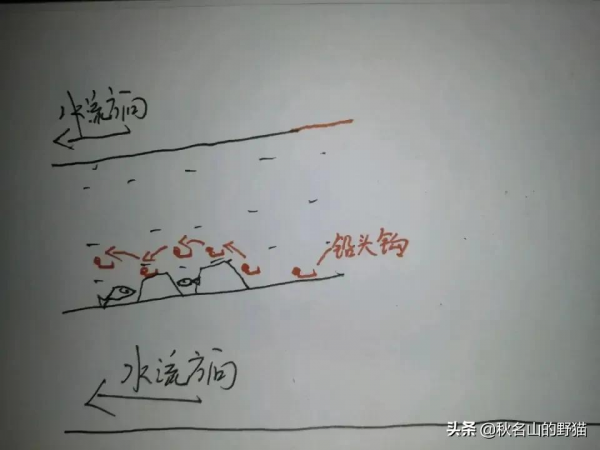 水流方向
铅头钩
水流方向
头条 @秋名山的野猫